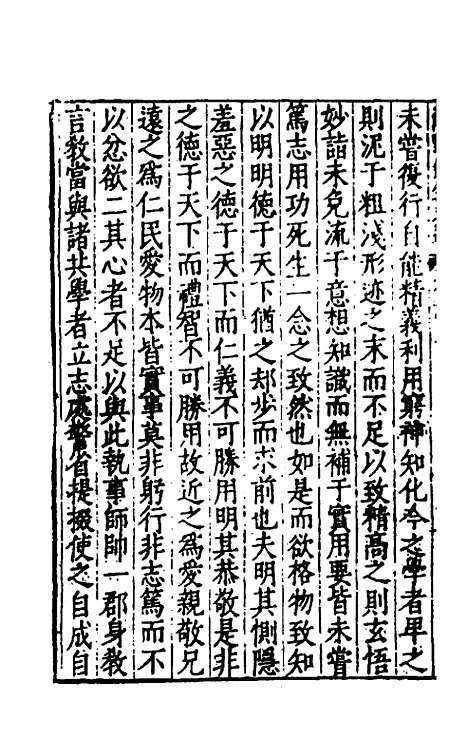 未嘗復行自能精義利用窮神知化今之學者卑之
則泥于粗淺形迹之末而不足以致精高之則玄悟
妙詣未免流于意想知識而無補于實用要皆未嘗
篤志用功死生一念之致然也如是而欲格物致知
以明明德于天下猶之却步而求前也夫明其惻隱
羞惡之德于天下而仁義不可勝用明其恭敬是非
之德于天下而禮智不可勝用故近之為愛親敬兄
遠之為仁民愛物本皆實事莫非躬行非志篤而不
以忿欲二其心者不足以與此執事師帥一郡身教
言教當與諸共學者立志處警省提掇使之自成自